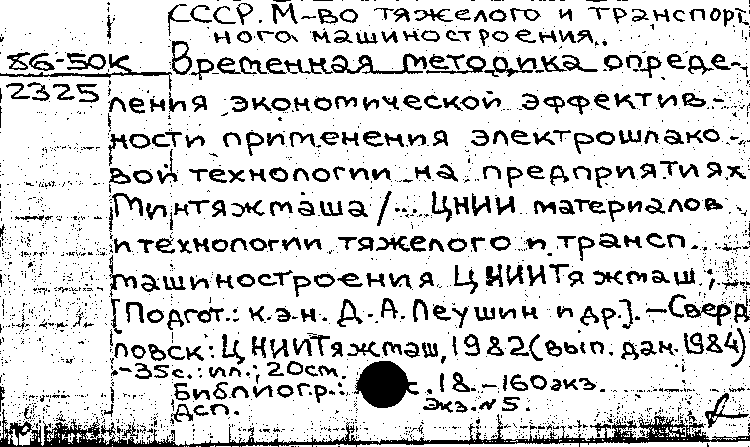 СССР. М-во тяжелого и транспорт
ного машиностроения.
86-50К Временная методика опреде-
2325 ления экономической эффектив-
ности применения электрошлако-
вой технологии на предприятиях
Минтяжмаша /... ЦНИИ материалов
и технологии тяжелого и трансп.
машиностроения ЦНИИТяжмаш;
[Подгот.: к.э.н. Д.А. Леушин и др.]. – Сверд
ловск: ЦНИИТяжмаш, 1982 (вып. дан. 1984)
-35с.: ил.; 20см.
Библиогр.: с. 18. – 160экз.
Дсп. Экз. № 5.